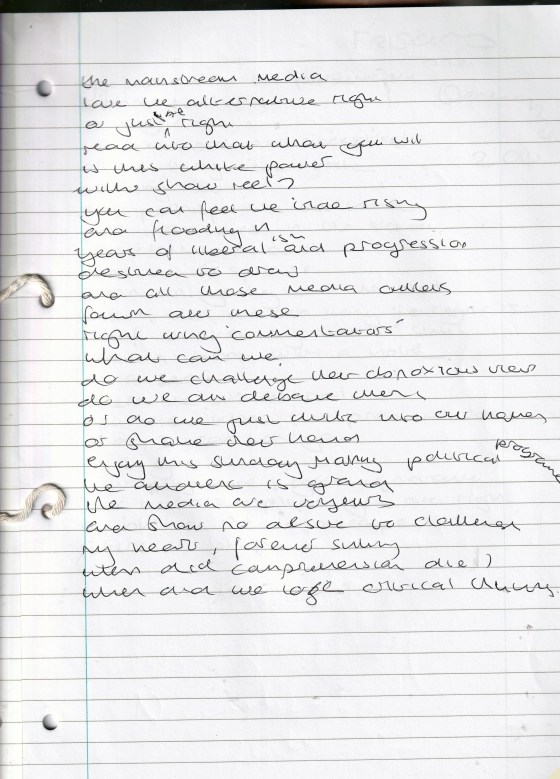 the mainstream media
love the alternative right
or just the right
read into that what you will
is this white power
with show reel?
you can feel the tide rising
and flooding in
years of liberalism and progression
destined to drown
and all these media outlets
fawn over these
right wing 'commentators'
what can we
do we challenge their obnoxious views
do we debate them
or do we just into our hands
or shake their hand
enjoy this sunday morning political programme
the audience is grand
the media are voyeurs
and show no desire to challenge
my heart, forever sinking
when did comprehension die?
when did we lose critical thinking